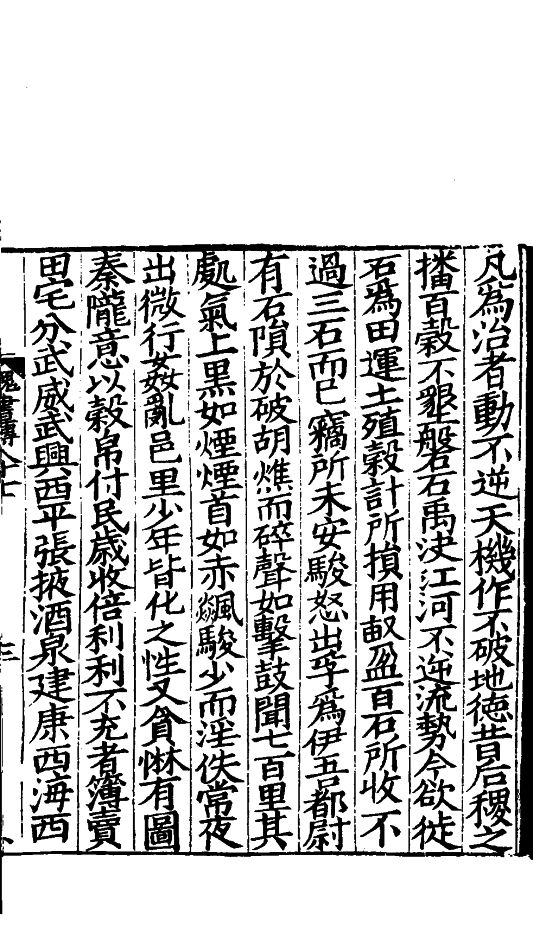 凡為治者動不逆天機作不破地德昔后稷之
播百穀不墾磐石禹決江河不逆流勢今欲徙
石為田運土殖穀計所損用畝盈百石所收不
過三石而已竊所未安駿怒出孚為伊吾都尉
有石隕於破胡燋而碎聲如擊鼓聞七百里其
處氣上黑如煙煙首如赤飈駿少而淫佚常夜
出微行姦亂邑里少年皆化之性又貪惏有圖
秦隴意以穀帛付民歲收倍利利不充者簿賣
田宅分武威武興西平張掖酒泉建康西海西
魏書傳八十七
三